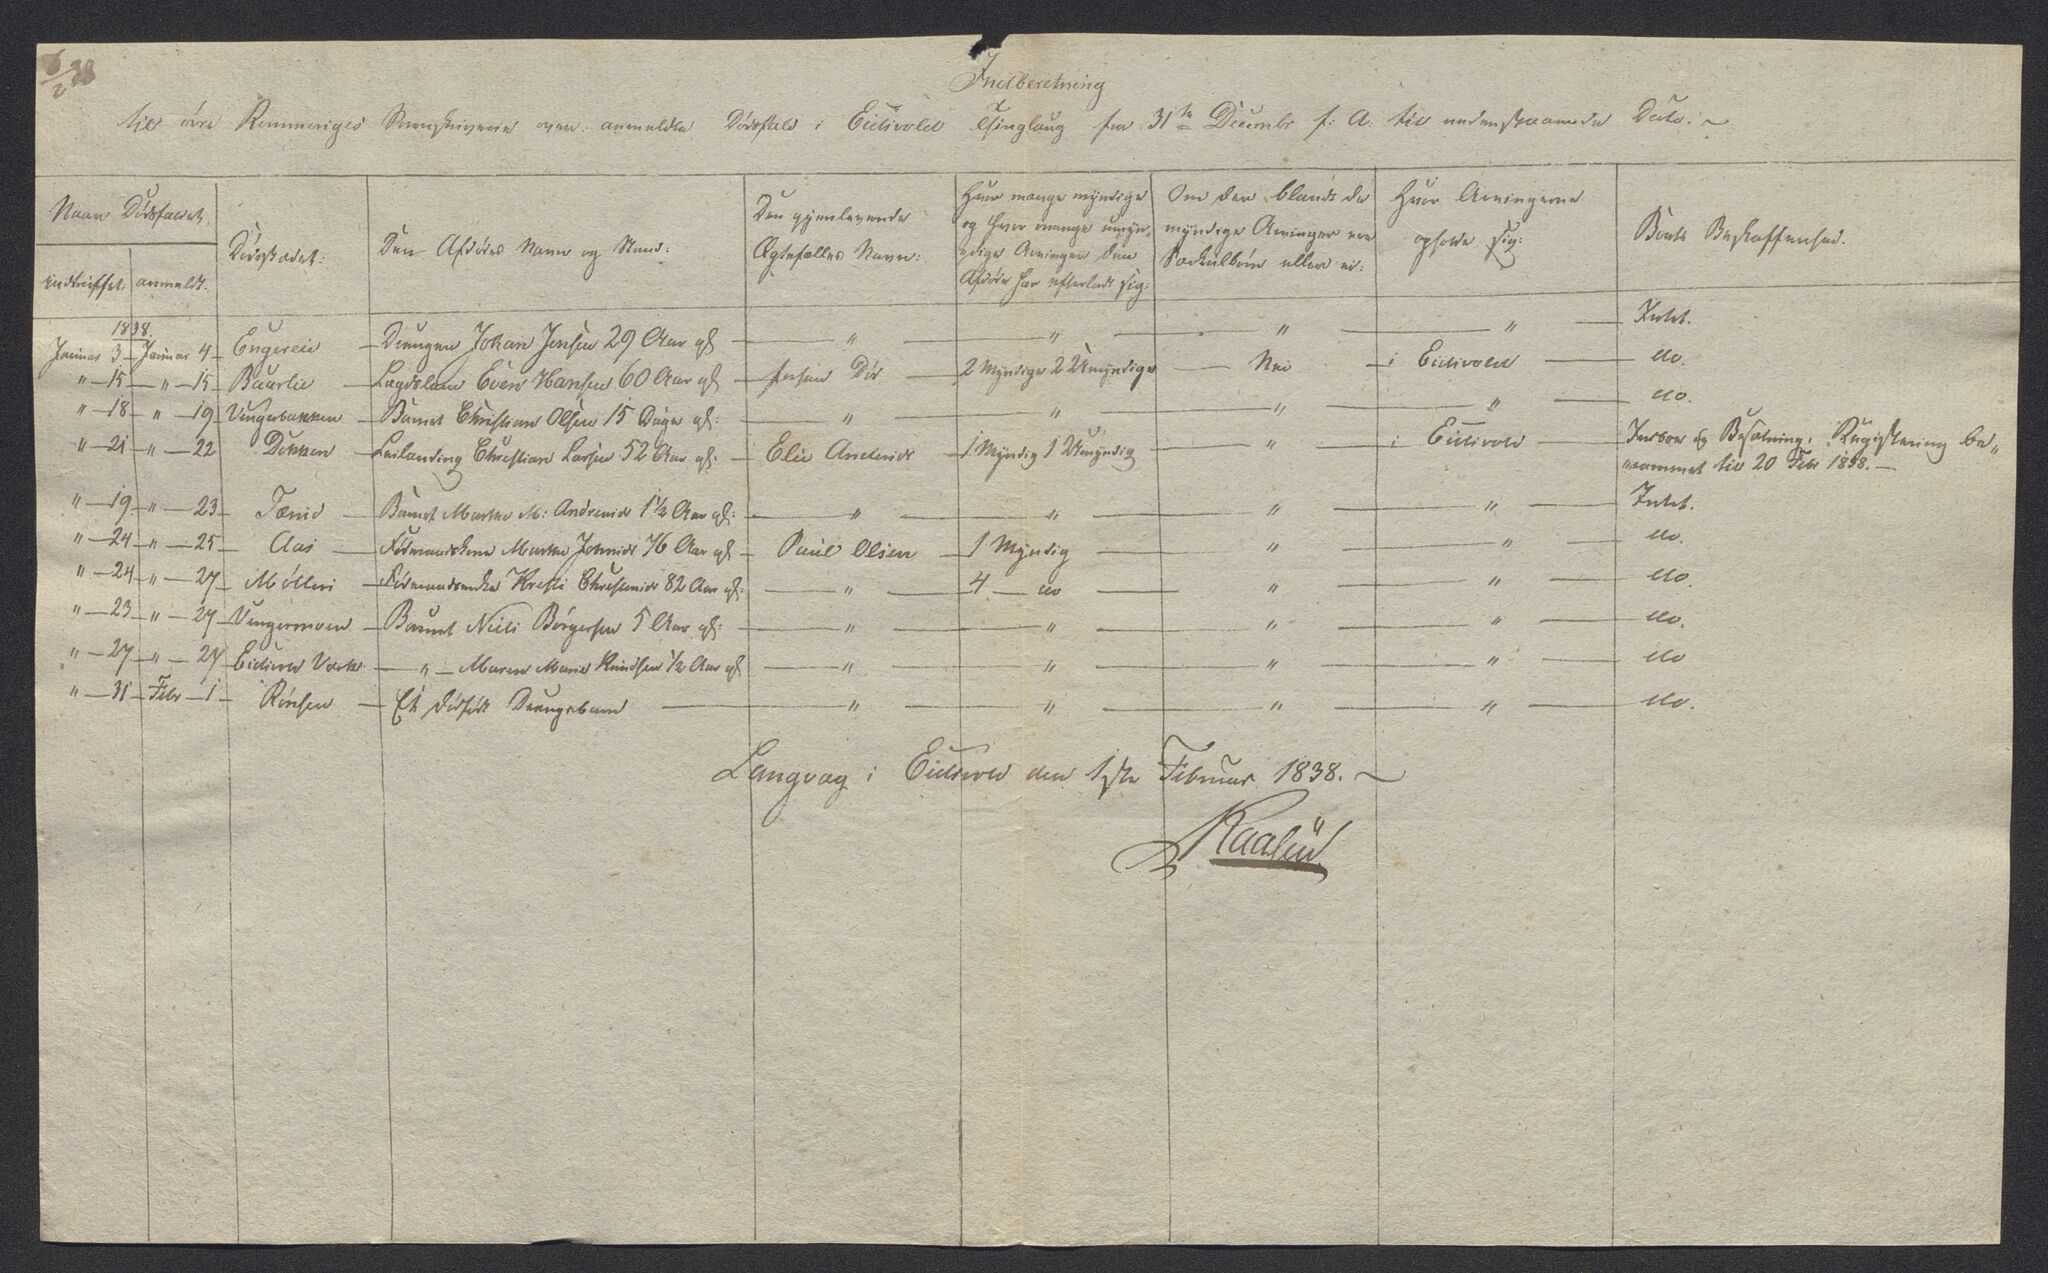 6/2 38
Indberetning
til övre Romeriges Sorenskriverie over anmeldte Dödsfald i Eidsvold Thinglaug fra 31te Decembr f: A. til nedenstaaende Dato. ~
Naar Dödsfaldet
indtruffet: anmeldt.
Dödsstedet:
Den Afdödes Navn og Stand:
Den gjenlevende
Ægtefælles Navn:
Hvor mange myndige
og hvor mange umyn-
dige Arvinger den
Afdöde har efterladt sig:
Om der blandt de
myndige Arvinger ere
Særkulbörn eller ei:
Hvor Arvingerne
opholde sig:
Boets Beskaffenhed.
1838.
Januar 3 – Januar 4 – – Drengen Johan Jensen 29 Aar gl – " – " – " – " – Intet.
" – 15 – " – 15 – Baarlie – Lægdslem Even Hansen 60 Aar gl – forhen Död – 2 Myndige 2 Umyndige – Nei – i Eidsvold – do.
" – 18 – " – 19 – Vingerbakken – Barnet Christian Olsen 15 Dage gl: – " – " – " – " – do.
" – 21 – " – 22 – Dokken – Leilænding Christian Larsen 52 Aar gl: – Elie Andersd – 1 Myndig 1 Umyndig – " – i Eidsvold – Indboe og Besætning. Registrering be„
„rammet til 20 Febr 1838. –
" – 19 – " – 23 – – Barnet Marthe M: Andreasd 1½ Aar gl: – " – " – " – " – Intet.
" – 24 – " – 25 – Aas – Födraadskone Marthe 76 Aar gl – Paul Olsen – 1 Myndig – " – " – do.
" – 24 – " – 27 – – Födraadsenke Kresti Christensd 82 Aar gl: – " – 4 – do – " – " – do.
" – 23 – " – 27 – Vingermoen – Barnet Niels Börgersen 5 Aar gl: – " – " – " – " – do.
" – 27 – " – 27 – Eidsvold Værk – " – Maren Marie Knudsen ½ Aar gl – " – " – " – " – do
" – 31 – Febr – 1 – Rönsen – Et dödfödt Drengebarn – " – " – " – " – do.
Langvag i Eidsvold den 1ste Februar 1838. ~